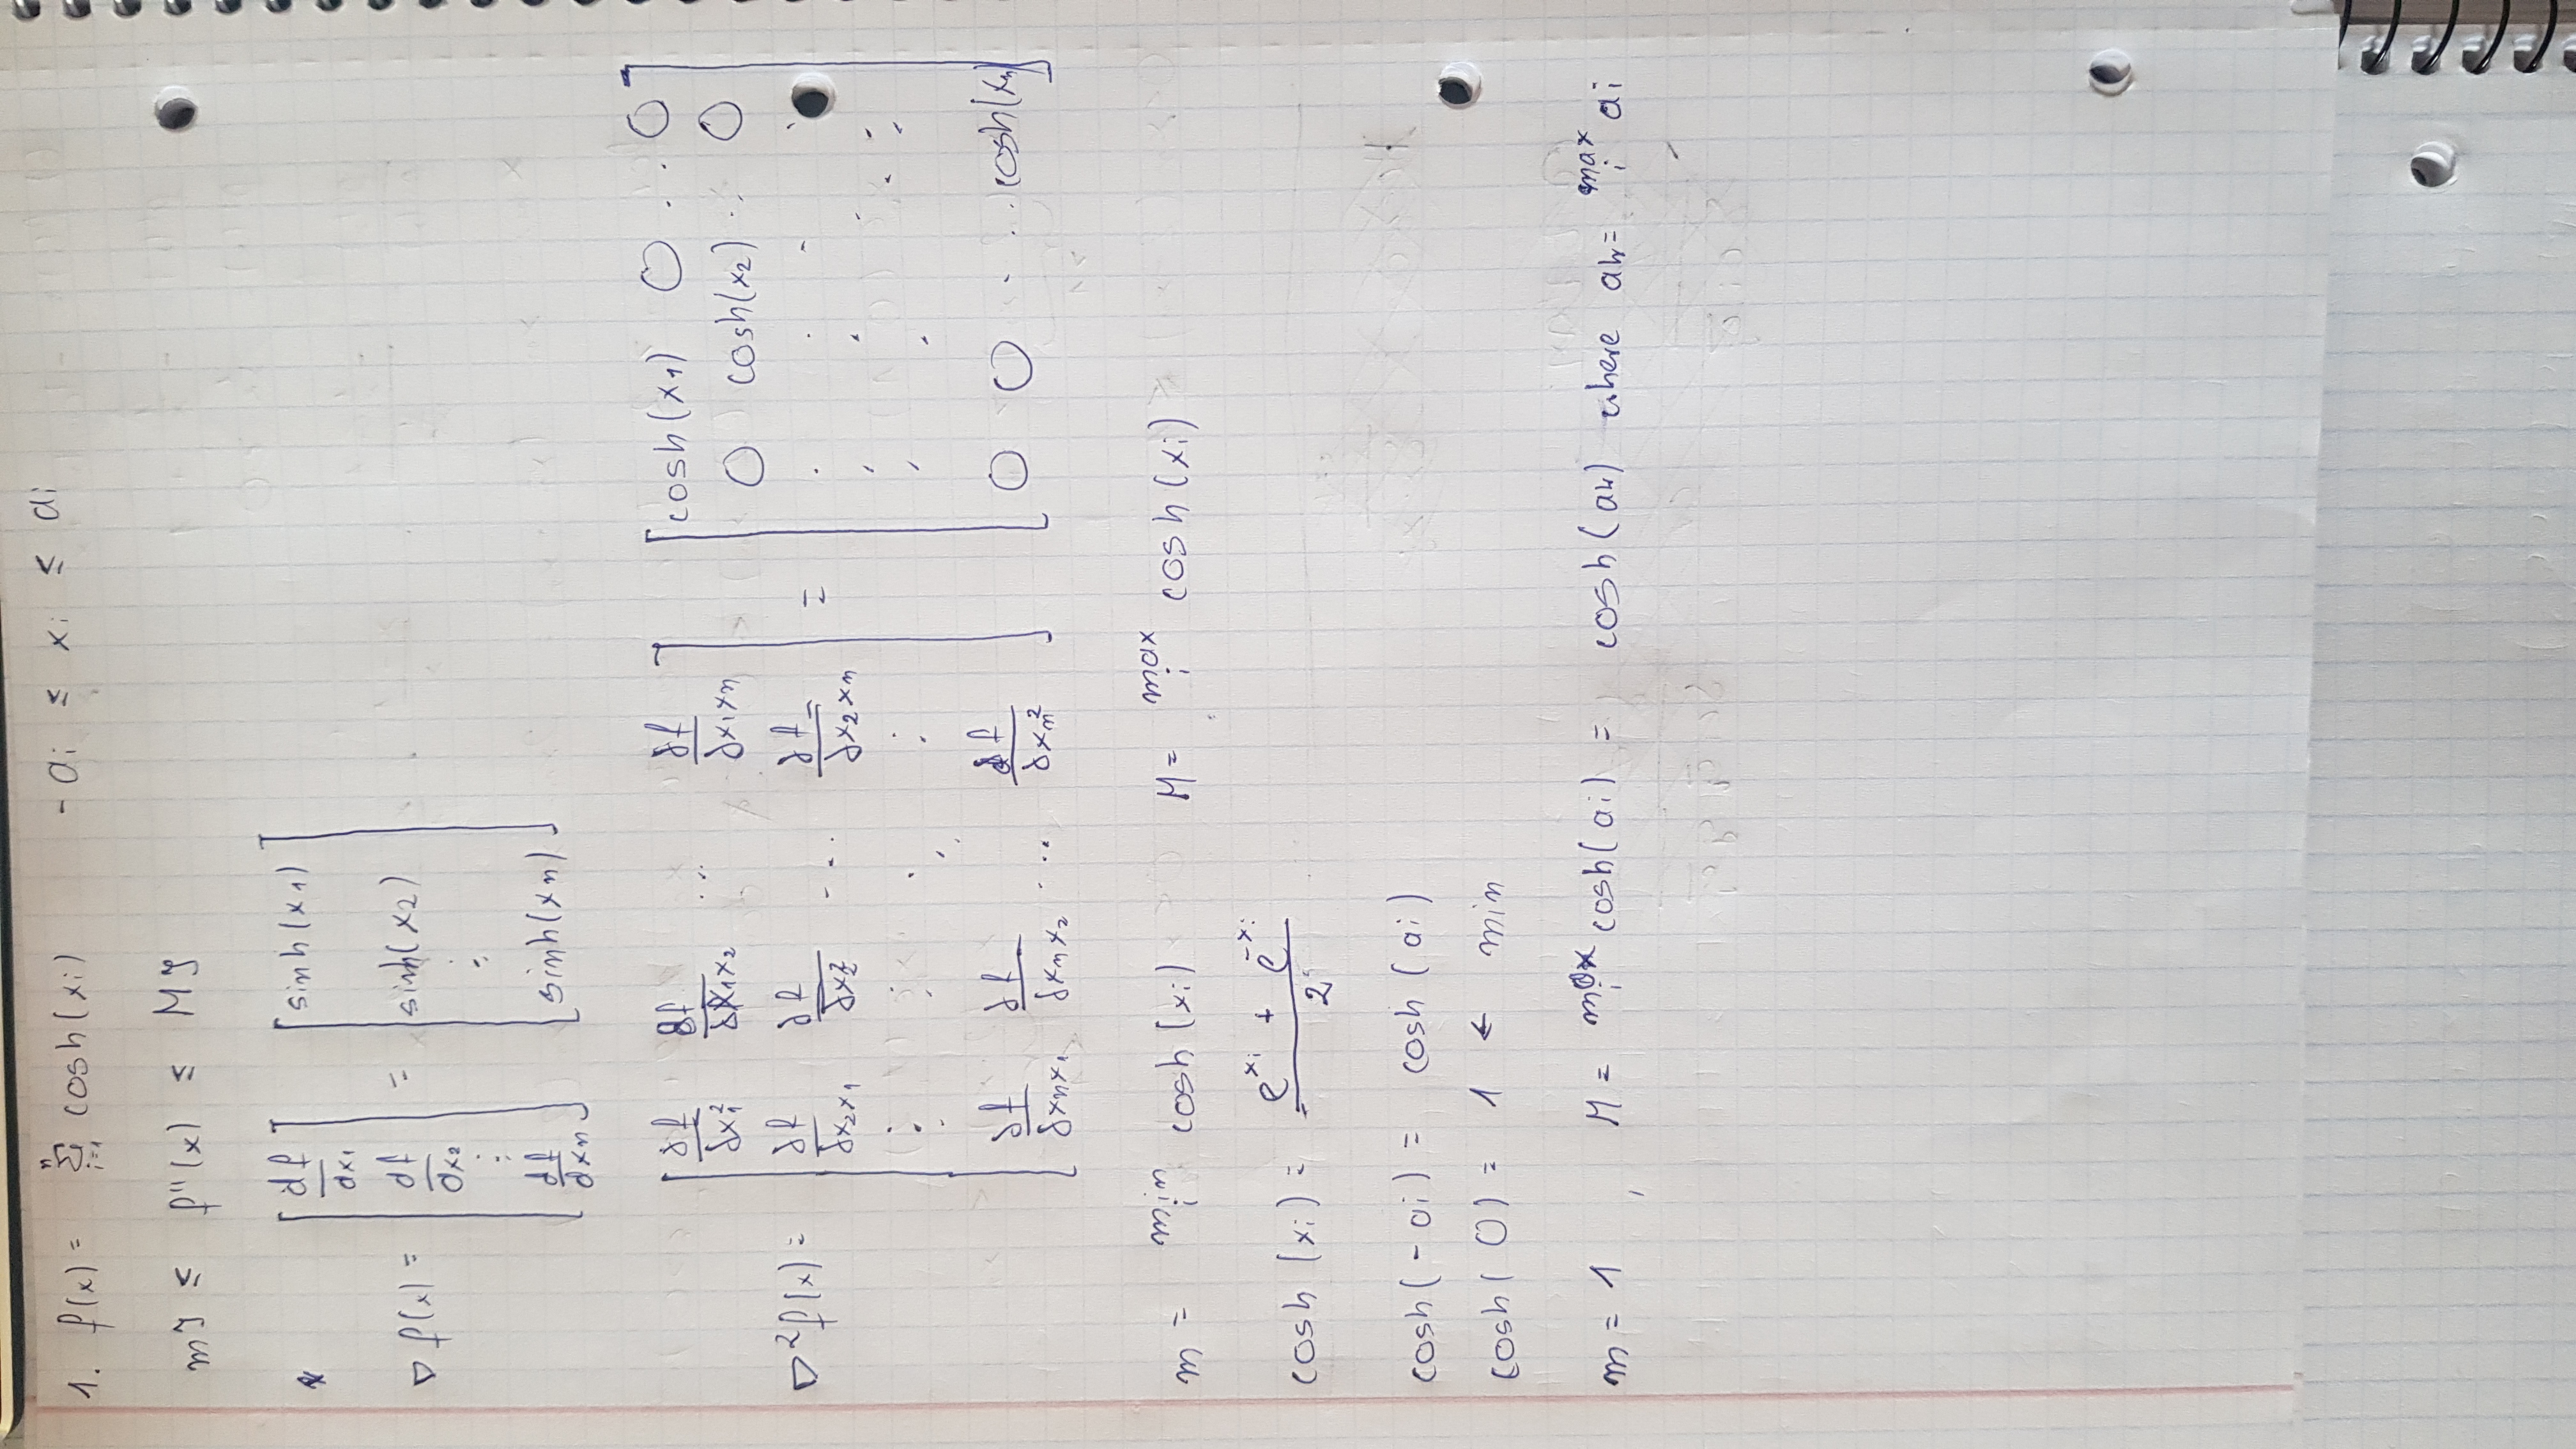 1. f(x) = n Σ i=1 cosh(xi) -ai ≤ xi ≤ ai
mI ≤ f''(x) ≤ MI
∇f(x) = [ df/dx1 df/dx2 ⋮ df/dxn ] = [ sinh(x1) sinh(x2) ⋮ sinh(xn) ]
∇²f(x) = [ ∂f/∂x1² ∂f/∂x1x2 ... ∂f/∂x1xn
∂f/∂x2x1 ∂f/∂x2² ... ∂f/∂x2xn
⋮ ⋮ ⋱ ⋮
∂f/∂xnx1 ∂f/∂xnx2 ... ∂f/∂xn² ] = [ cosh(x1) 0 .. 0
0 cosh(x2) .. 0
⋮ ⋮ ⋱ ⋮
0 0 ... cosh(xn) ]
m = min i cosh(xi) M = max i cosh(xi)
cosh(xi) = e^xi + e^-xi / 2
cosh(-ai) = cosh(ai)
cosh(0) = 1 ← min
m = 1 , M = max i cosh(ai) = cosh(ak) where ak = max i ai